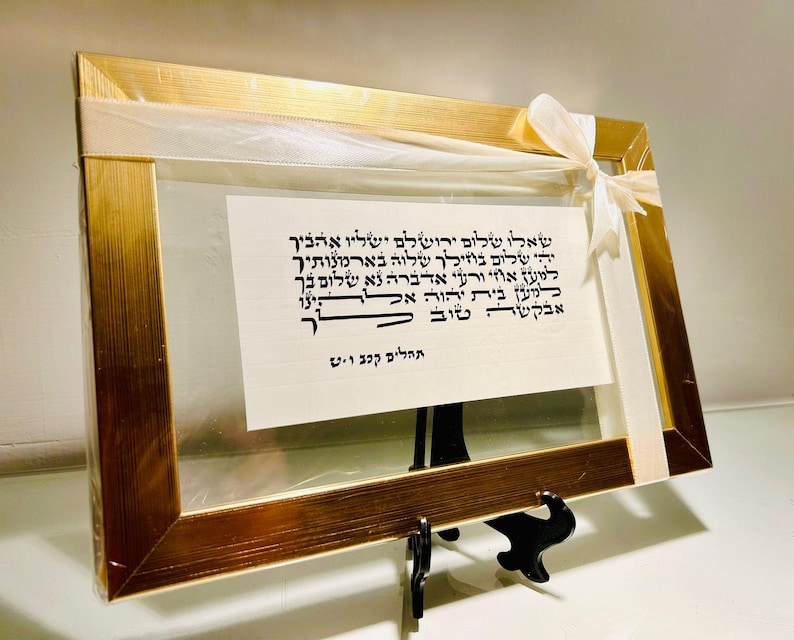 שאלו שלום ירושלם ישליו אהביך
יהי שלום בחילך שלוה בארמנותיך
למען אחי ורעי אדברה נא שלום בך
למען בית יהוה אלהינו
אבקשה טוב לך
תהלים קכב ו-ט